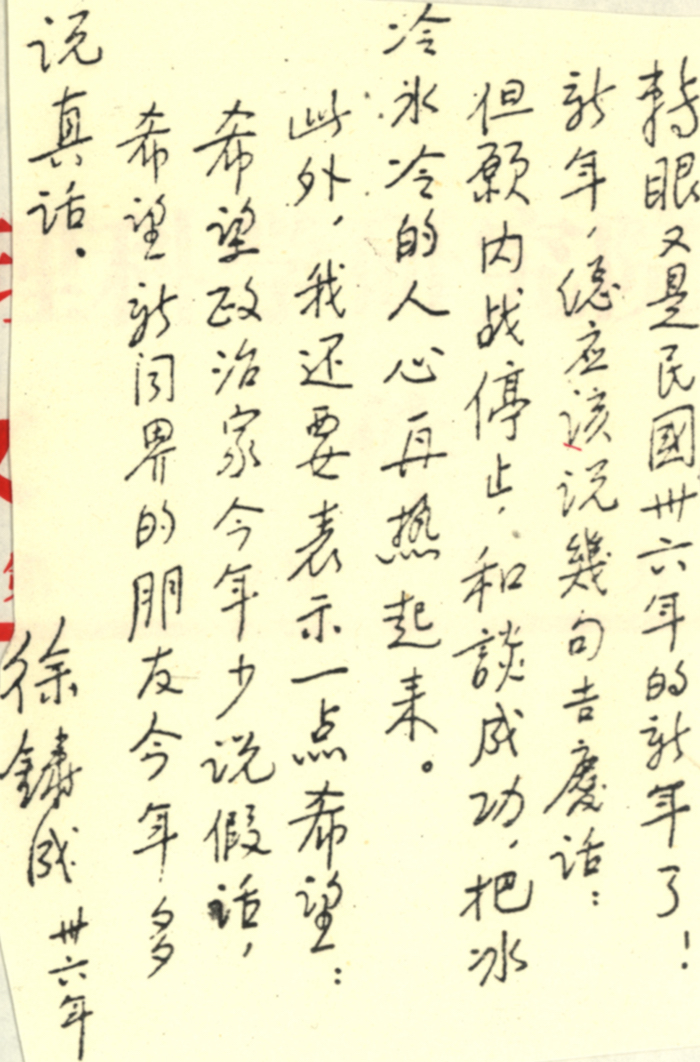 轉眼又是民國卅六年的新年了！
新年，总应该说幾句吉慶话：
但愿内战停止，和談成功，把冰
冷冰冷的人心再热起来。
此外，我还要表示一点希望：
希望政治家今年少说假话，
希望新闻界的朋友今年多
说真话。
徐鑄成 卅六年